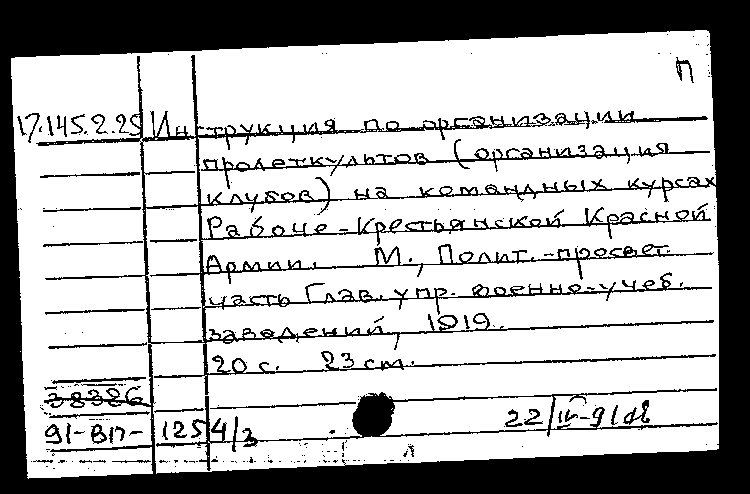 П
17.145.2.25 Инструкция по организации
пролеткультов (организация
клубов) на командных курсах
Рабоче-Крестьянской Красной
Армии. М., Полит.-просвет.
часть Глав. упр. военно-учеб.
заведений, 1919.
20 с. 23 см.
38326
91-ВП-1254/3